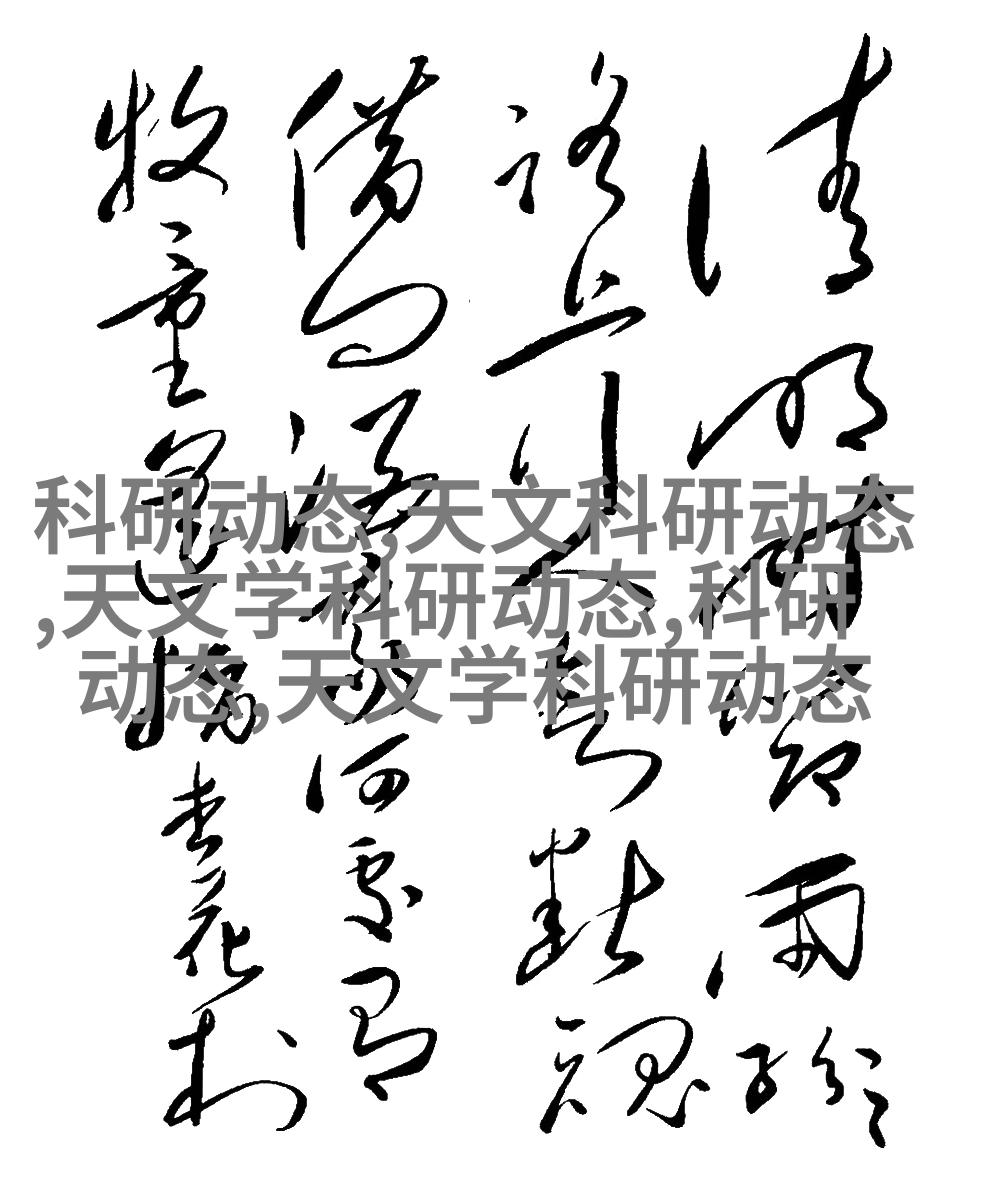 清明时節雨紛〻
路上行人欲斷魂
借问酒家何處有
牧童遥指杏花村
科研动态,天文科研动态
,天文学科研动态,科研
动态,天文学科研动态